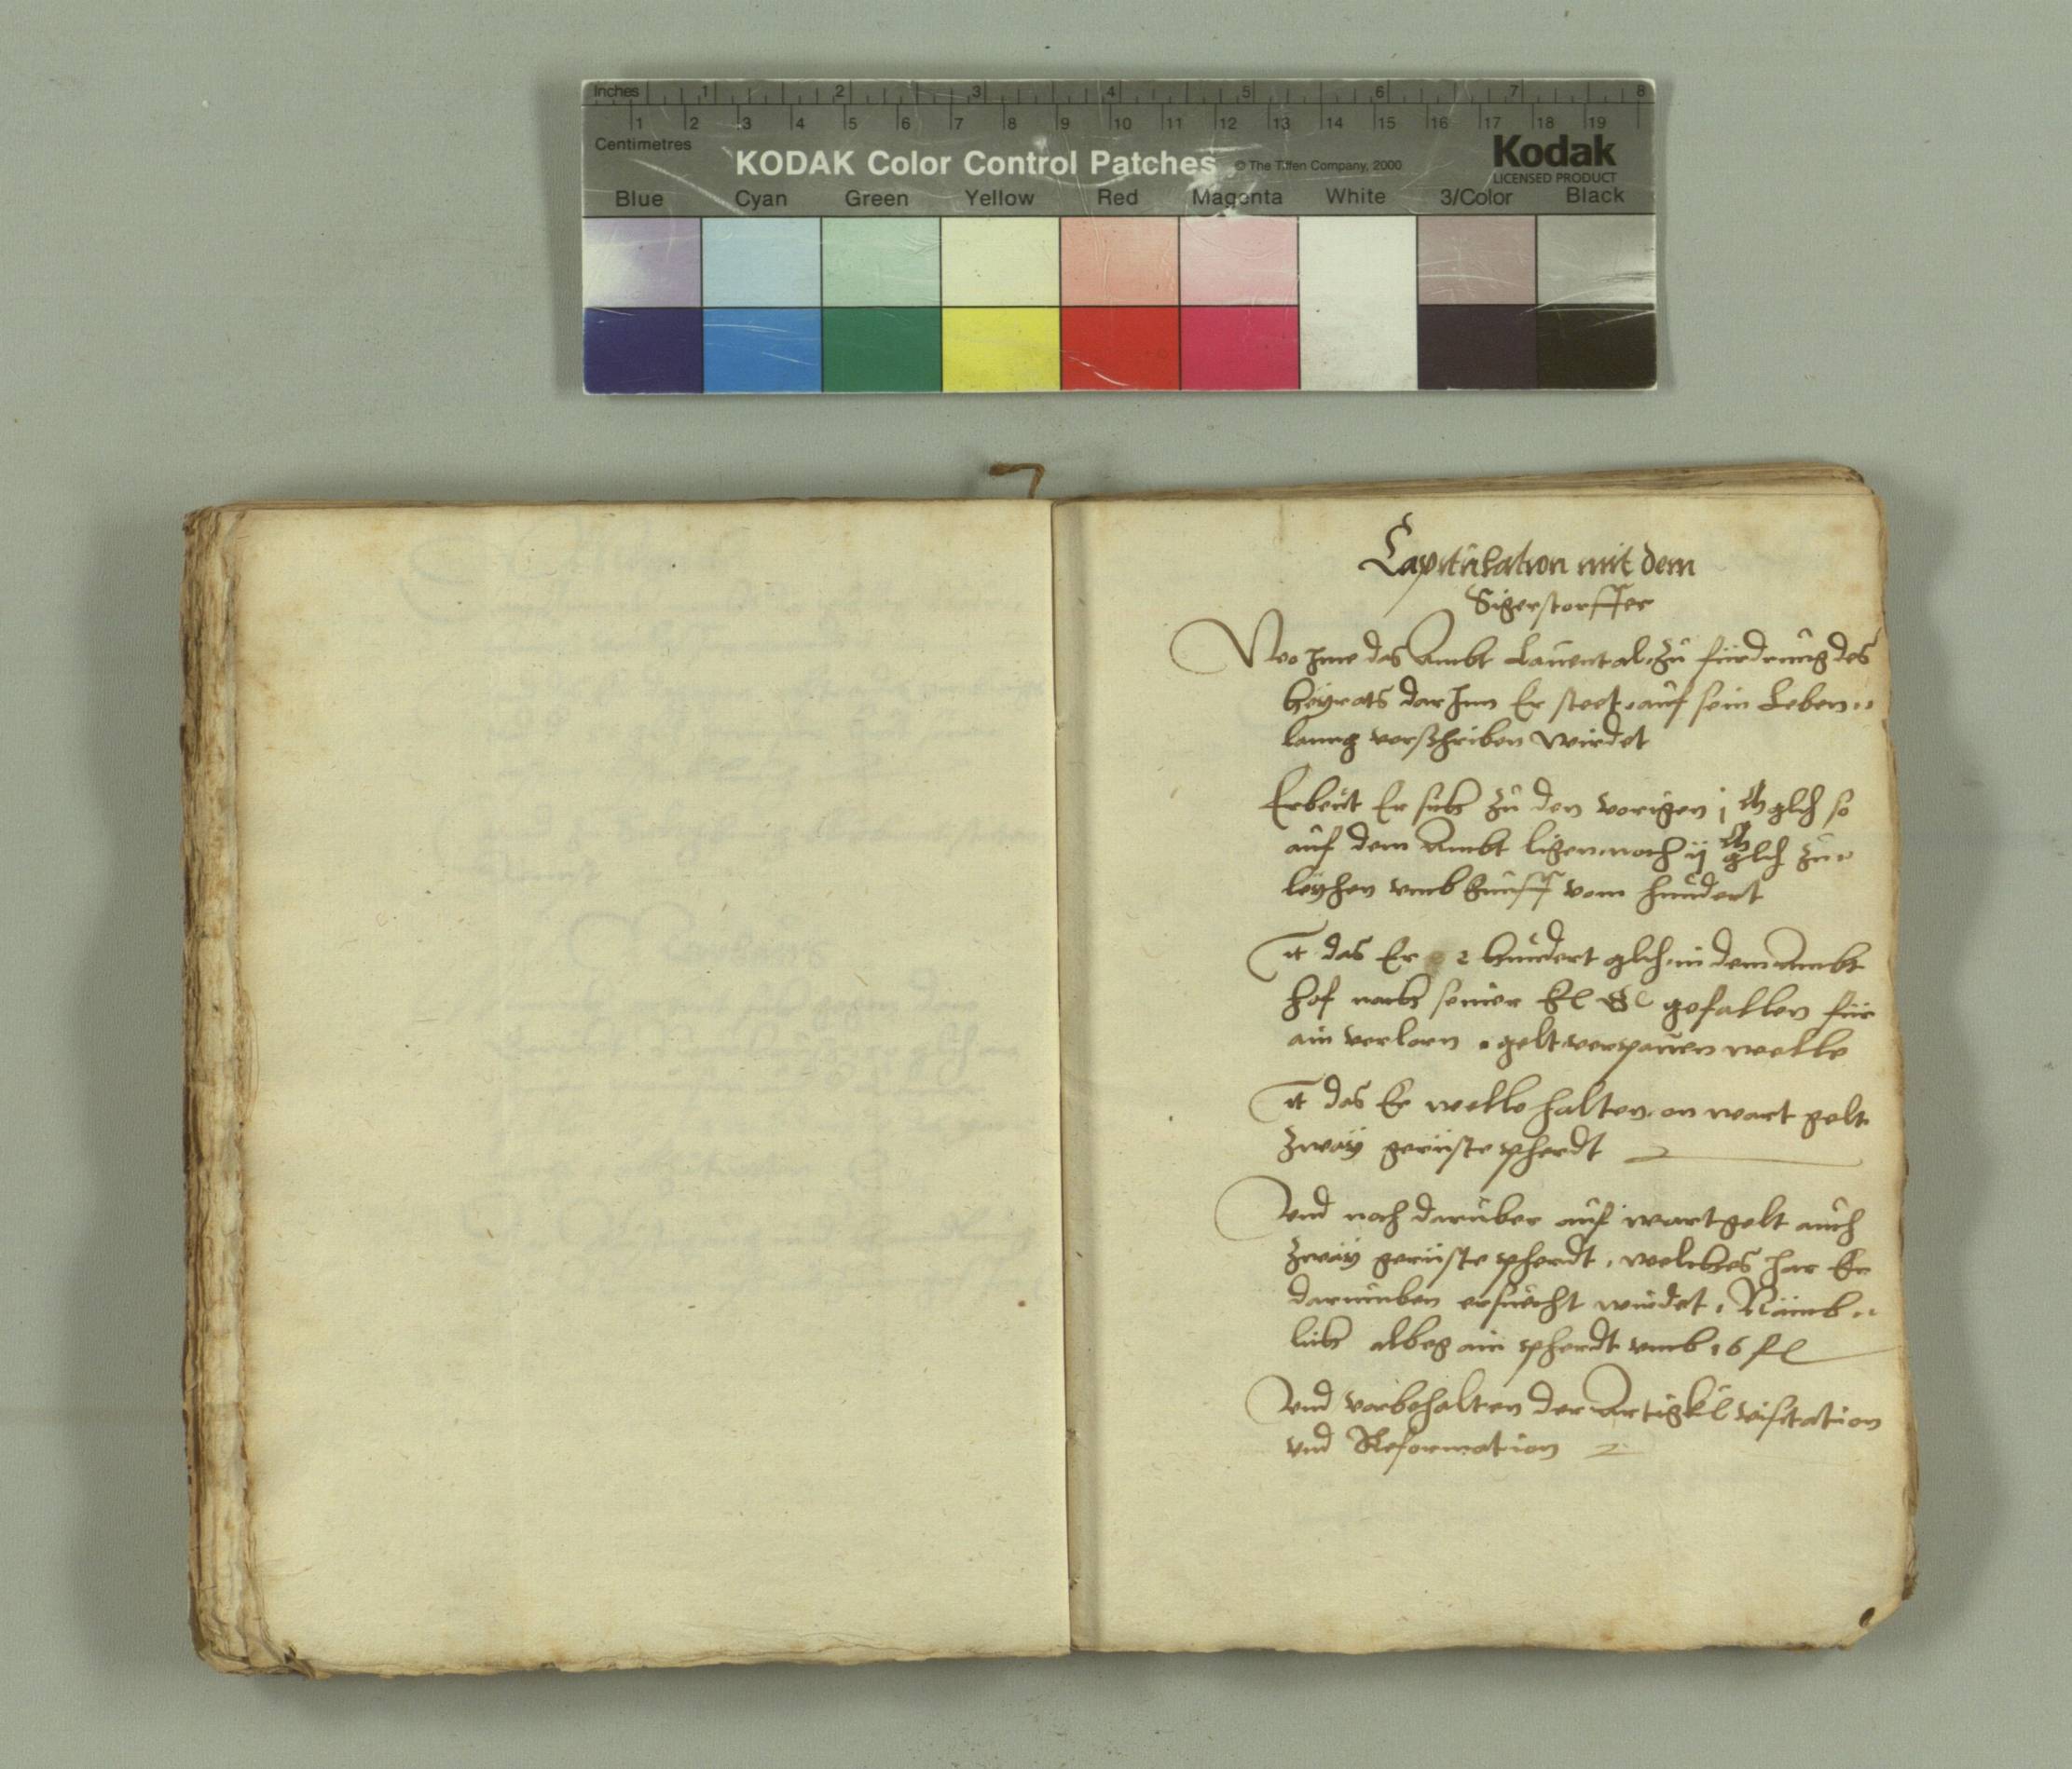 Inches 1 2 3 4 5 6 7 8
1 2 3 4 5 6 7 8 9 10 11 12 13 14 15 16 17 18 19
Centimetres
KODAK Color Control Patches © The Tiffen Company, 2000 Kodak
LICENSED PRODUCT
Blue Cyan Green Yellow Red Magenta White 3/Color Black
Capitulation mit dem
Sigerstorffer
Wo Ime das Ambt Lauental zu fürdrung des
heyrats dar Inn Er steet auf sein Leben„
lanng verschriben wirdet
Erbeut Er sich zu den vorigen j glch so
auf dem Ambt ligen noch ij glch zu„
leyhen vmb funff vom hundert
It das Er 2 hundert glch in dem Ambt
hof nach seiner gefallen für
ain verlorn gelt verpauen welle
It das Er welle halten on wart gelt
zway geruste pherdt
Vnd noch daruber auf wartgelt auch
zway geruste pherdt, welches Jar Er
darumben ersuecht wurdet, Nämb„
lich albeg ain pherdt vmb 16 fl
Vnd vorbehalten der Artigkl visitation
vnd Reformation